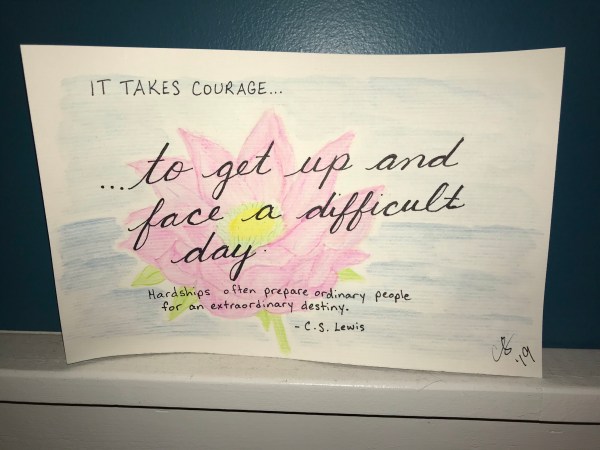 IT TAKES COURAGE...
...to get up and
face a difficult
day.
Hardships often prepare ordinary people
for an extraordinary destiny.
- C.S. Lewis
'19